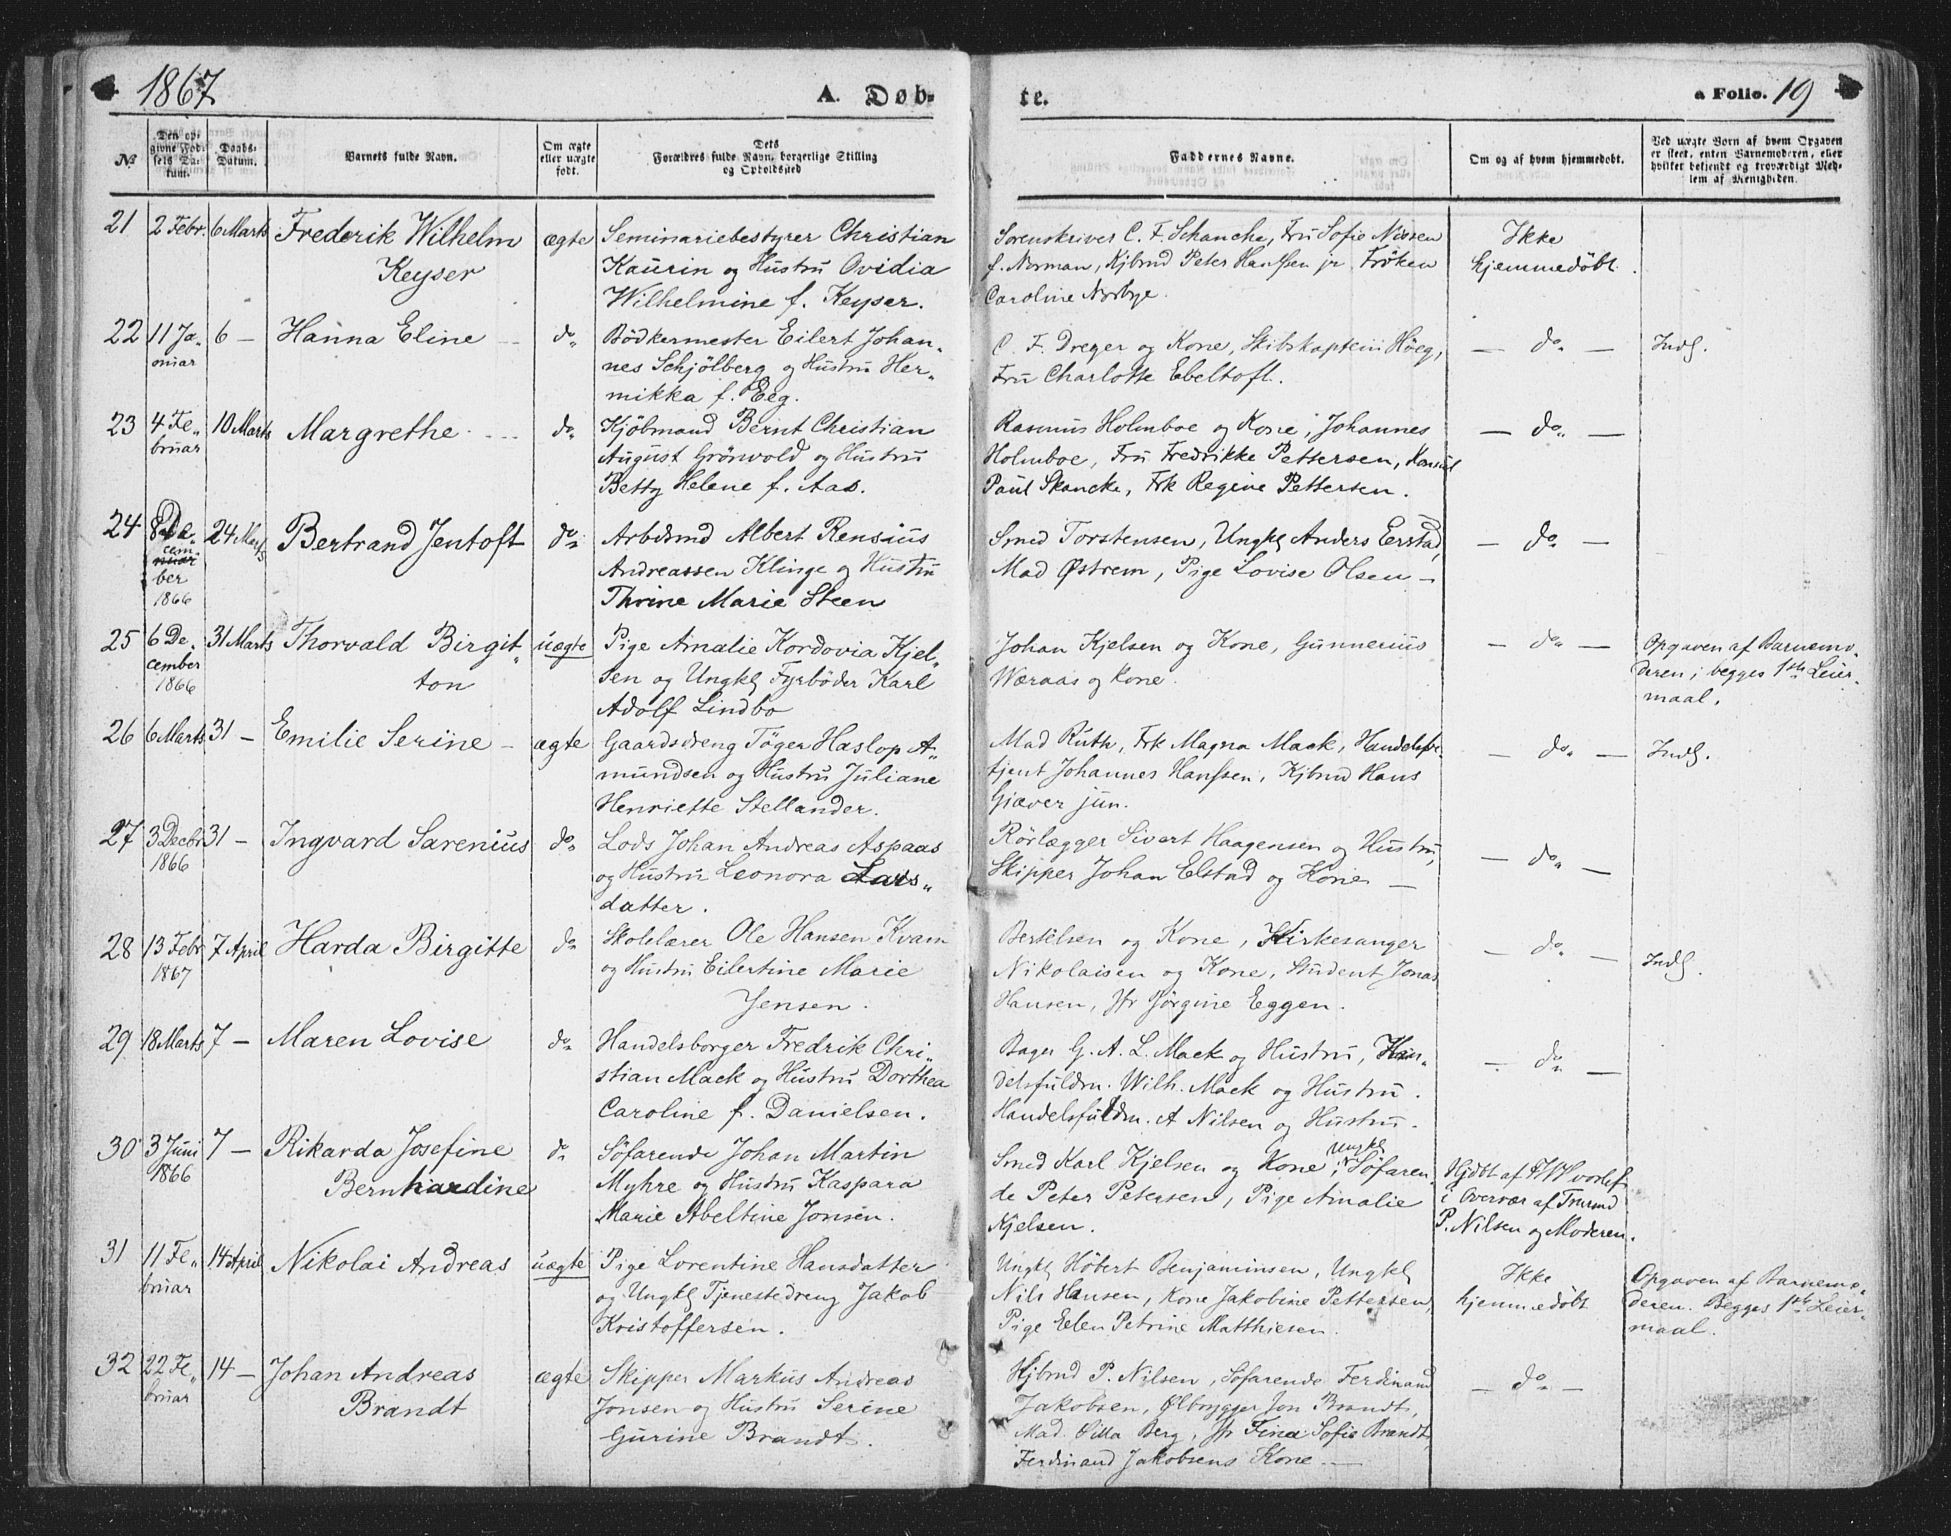 1867
A. Døb-
te.
a Folio. 19
№
Den op-
givne Fød-
sels Da-
tum.
Daabs-
Datum.
Barnets fulde Navn.
Om ægte
eller uægte
født.
Dets
Forældres fulde Navn, borgerlige Stilling
og Opholdssted
Faddernes Navne.
Om og af hvem hjemmedøbt.
Ved uægte Børn af hvem Opgaven
er skeet, enten Barnemoderen, eller
hvilket bekjendt og troværdigt Med-
lem af Menigheden.
21 2 Febr. 6 Marts Frederik Wilhelm ægte Seminariebestyrer Christian Sorenskriver C. F. Schanche, Fru Sofie Nissen Ikke
Keyser Kaurin og Hustru Ovidia f. Norman, Kjbmd Peter Hanssen jr. Frøken hjemmedöbt.
Wilhelmine f. Keyser. Caroline Norbye.
22 11 Ja- 6 — Hanna Eline do Bödkermester Eilert Johan- C. F. Dreyer og Kone, Skibskaptein Höeg, — do — Indf.
nuar nes Schjölberg og Hustru Her- Fru Charlotte Ebeltoft.
mikka f. Eeg.
23 4 Fe- 10 Marts Margrethe do Kjöbmand Bernt Christian Rasmus Holmboe og Kone, Johannes — do —
bruar August Grönvold og Hustru Holmboe, Fru Fredrikke Pettersen, Konsul
Betty Helene f. Aas. Paul Skancke, Frk Regine Pettersen.
24 8 De- 24 Marts Bertrand Jentoft do Arbdsmd Albert Rensius Smed Torstensen, Ungkl Anders Errstad, — do —
cem-
ber Andreassen Klinge og Hustru Mad Østrem, Pige Lovise Olsen —
1866 Thrine Marie Steen
25 6 De- 31 Marts Thorvald Birgit- uægte Pige Amalie Kordovia Kjel- Johan Kjelsen og Kone, Gunnerius — do — Opgaven af Barnemo-
cember ton sen og Ungkl Fyrböder Karl Wæraas og Kone. deren; begges 1ste Leier-
1866 Adolf Lindbo maal.
26 6 Marts 31 — Emilie Serine — ægte Gaardsdreng Töger Haslop A- Mad Ruth, Frk Magna Mack, Handelsbe- — do — Indf.
mundsen og Hustru Juliane tjent Johannes Hanssen, Kjbmd Hans
Henriette Stellander. Giæver jun.
27 3 Decbr 31 — Ingvard Sarenius do Lods Johan Andreas Aspaas Rörlægger Sivert Haagensen og Hustru, — do —
1866 og Hustru Leonora Lars- Skipper Johan Elstad og Kone —
datter.
28 13 Febr 7 April Harda Birgitte do Skolelærer Ole Hansen Kvam Bertelsen og Kone, Kirkesanger — do — Indf.
1867 og Hustru Eilertine Marie Nikolaisen og Kone, Student Jonas
Jensen. Hansen, Jfr Jörgine Eggen.
29 18 Marts 7 — Maren Lovise do Handelsborger Fredrik Chri- Bager G. A. L. Mack og Hustru, Han- — do —
stian Mack og Hustru Dorthea delsfuldm. Wilh. Mack og Hustru.
Caroline f. Danielsen. Handelsfuldm. A Nilsen og Hustru.
30 3 Juni 7 — Rikarda Josefine do Söfarende Johan Martin Smed Karl Kjelsen og Kone, Ungkl Söfaren-
1866 Bernhardine Myhre og Hustru Kaspara de Peter Petersen, Pige Amalie i Overvær af
Marie Abeltine Jonsen. Kjelsen. P. Nilsen og Moderen.
31 11 Fe- 14 April Nikolai Andreas uægte Pige Lorentine Hansdatter Ungkl Höbert Benjaminsen, Ungkl Ikke Opgaven af Barnemo-
bruar og Ungkl Tjenestedreng Jakob Nils Hansen, Kone Jakobine Pettersen, hjemmedöbt deren. Begges 1ste Leier-
Kristoffersen. Pige Elen Petrine Matthiesen. maal.
32 22 Fe- 14 — Johan Andreas ægte Skipper Markus Andreas Kjbmd P. Nilsen, Söfarende Ferdinand — do —
bruar Brandt Jonsen og Hustru Serine Jakobsen, Ølbrygger Jon Brandt,
Gurine Brandt. Mad. Berg, Jfr Fina Sofie Brandt,
Ferdinand Jakobsens Kone. —